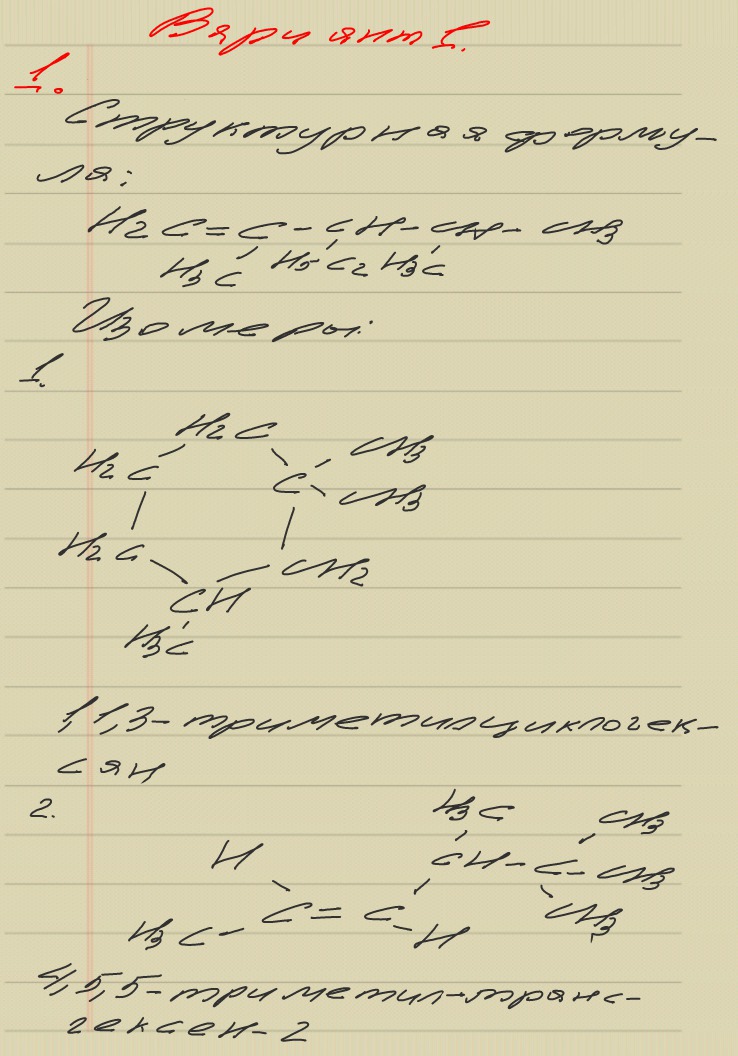 Вариант 1.
1.
Структурная форму-
ла:
H2C=C-CH-CH-CH3
H3C H5C2 H3C
Изомеры:
1.
H2C
CH3
H2C
C
CH3
H2C
CH2
CH
H3C
1,1,3-триметилциклогек-
сан
2.
H3C
CH3
H
CH-C-CH3
C=C
CH3
H3C-
H
4,5,5-триметил-транс-
гексен-2